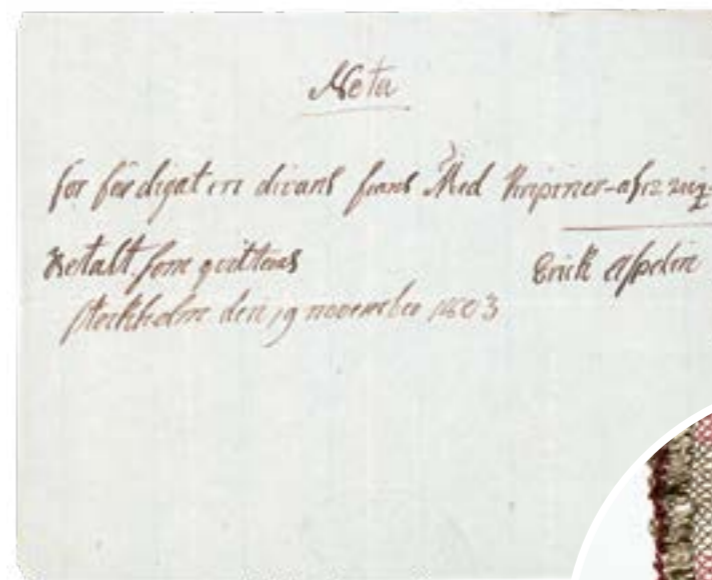 Nota
för färdigat en divans frans Med
Betalt som qvitteras Erick Aspelin
Stockholm den 19 november 1803